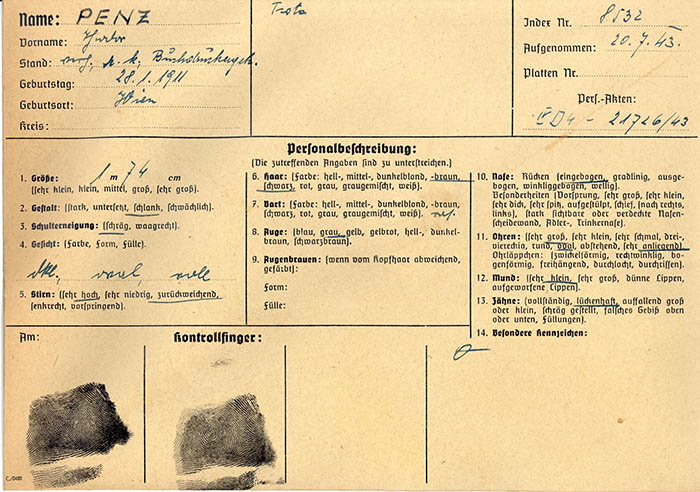 Name: PENZ
Vorname:
Stand: verh. Buchdruckergeh.
Geburtstag: 28.1.1911
Geburtsort: Wien
Kreis:
Index Nr. 8532
Aufgenommen: 20.7.43.
Platten Nr.
Pers.-Akten:
21726/43
Personalbeschreibung:
(Die zutreffenden Angaben sind zu unterstreichen.)
1. Größe: 1 m 74 cm
(sehr klein, klein, mittel, groß, sehr groß).
2. Gestalt: (stark, untersetzt, schlank, schwächlich).
3. Schulterneigung: (schräg, waagrecht).
4. Gesicht: (Farbe, Form, Fülle).
dkl., oval, voll
5. Stirn: (sehr hoch, sehr niedrig, zurückweichend,
senkrecht, vorspringend).
6. Haar: (Farbe: hell-, mittel-, dunkelblond, -braun,
schwarz, rot, grau, graugemischt, weiß).
7. Bart: (Farbe: hell-, mittel-, dunkelblond, -braun,
schwarz, rot, grau, graugemischt, weiß).
8. Auge: (blau, grau, gelb, gelbrot, hell-, dunkel-
braun, schwarzbraun).
9. Augenbrauen: (wenn vom Kopfhaar abweichend,
gefärbt):
Form:
Fülle:
10. Nase: Rücken (eingebogen, gradlinig, ausge-
bogen, winkliggebogen, wellig).
Besonderheiten (Vorsprung, sehr groß, sehr klein,
sehr dick, sehr spitz, aufgestülpt, schief, (nach rechts,
links), stark sichtbare oder verdeckte Nasen-
scheidewand, Adler-, Trinkernase).
11. Ohren: (sehr groß, sehr klein, sehr schmal, drei-,
viereckig, rund, oval, abstehend, sehr anliegend).
Ohrläppchen: (zwickelförmig, rechtwinklig, bo-
genförmig, freihängend, durchlocht, durchrissen).
12. Mund: (sehr klein, sehr groß, dünne Lippen,
aufgeworfene Lippen).
13. Zähne: (vollständig, lückenhaft, auffallend groß
oder klein, schräg gestellt, falsches Gebiß oben
oder unten, Füllungen).
14. Besondere Kennzeichen:
Am:
Kontrollfinger: